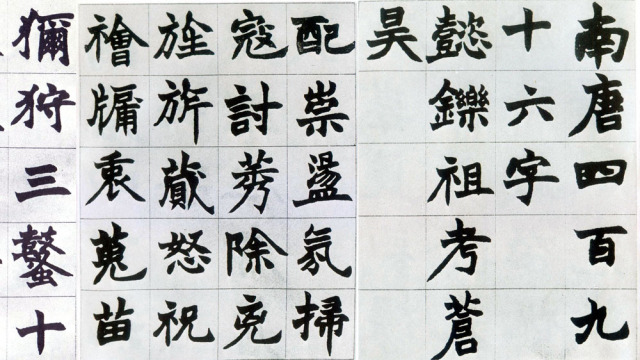 南唐四百九
十六字
懿鑠祖考蒼
昊
配祟盪氛掃
寇討莠除兇
旌旂蕆怒祝
禬牖衷蒐苗
獮狩三鼜十